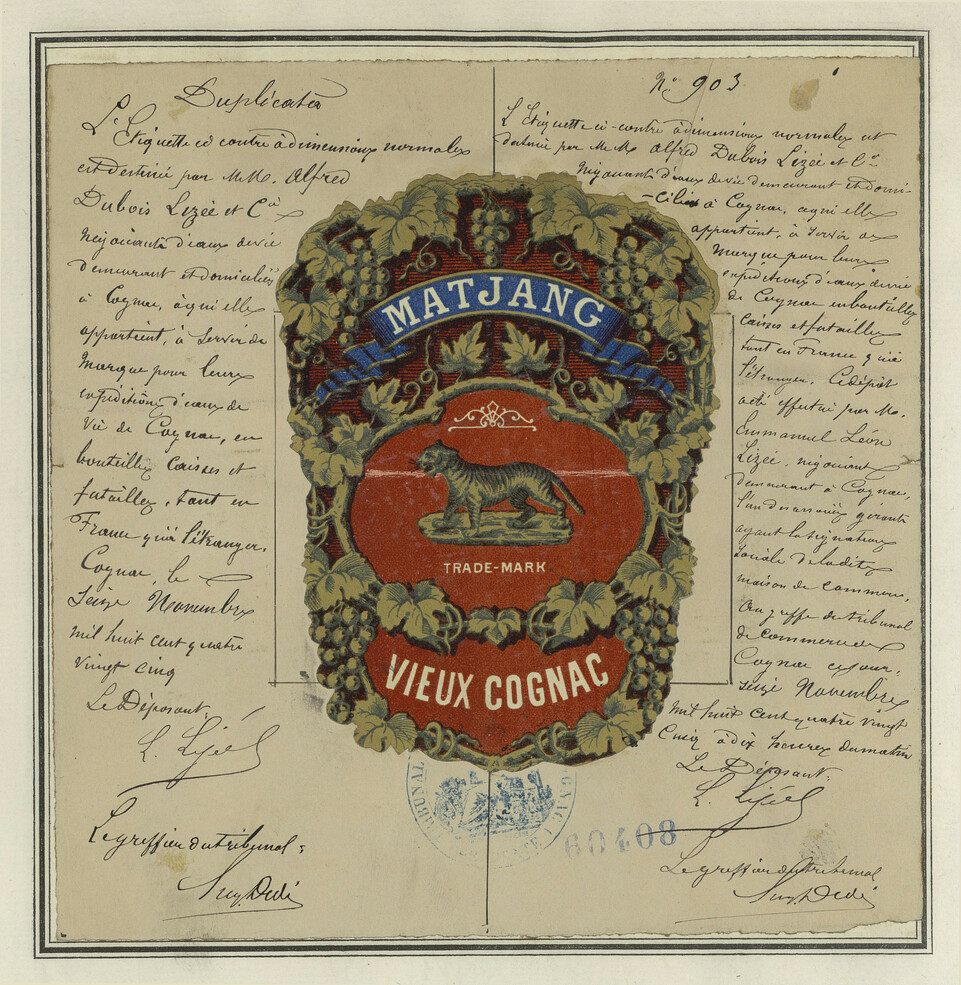 Duplicata
L'Etiquette ci contre à dimensions normales
est destinée par M.M. Alfred
Dubois Lizée et Cie
négociants d'eaux de vie
demeurant et domiciliés
à Cognac, à qui elle
appartient, à servir de
marque pour leurs
expéditions d'eaux de
vie de Cognac, en
bouteilles caisses et
futailles, tant en
France qu'à l'étranger.
Cognac, le
seize Novembre
mil huit cent quatre
vingt cinq
Le Déposant:
L. Lizée
Le greffier du tribunal:
No 903
L'Etiquette ci-contre à dimensions normales est
destinée par M.M. Alfred Dubois Lizée et Cie
Négociants d'eaux de vie demeurant et domi-
-ciliés à Cognac, à qui elle
appartient, à servir de
marque pour leurs
expéditions d'eaux de vie
de Cognac en bouteilles
caisses et futailles
tant en France qu'à
l'étranger. Ce dépôt
a été effectué par M.
Emmanuel Léon
Lizée, négociant
demeurant à Cognac,
l'un des associés gérants
ayant la signature
sociale de ladite
maison de commerce,
au greffe du tribunal
de commerce de
Cognac ce jour,
seize Novembre
mil huit cent quatre vingt
cinq à dix heures du matin
Le Déposant:
L. Lizée
Le greffier du tribunal
MATJANG
TRADE-MARK
VIEUX COGNAC
60408